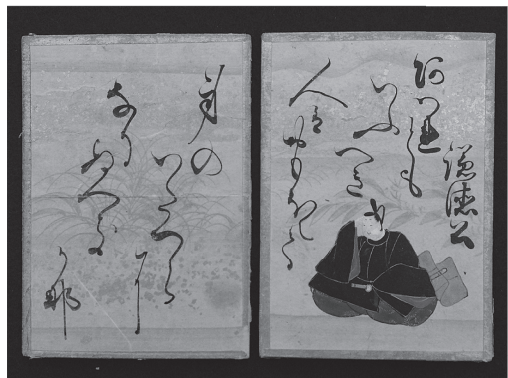 謙徳公
あはれとも
いふへき
人は
おもほえて
身の
いたつらに
なり
ぬへき
か那